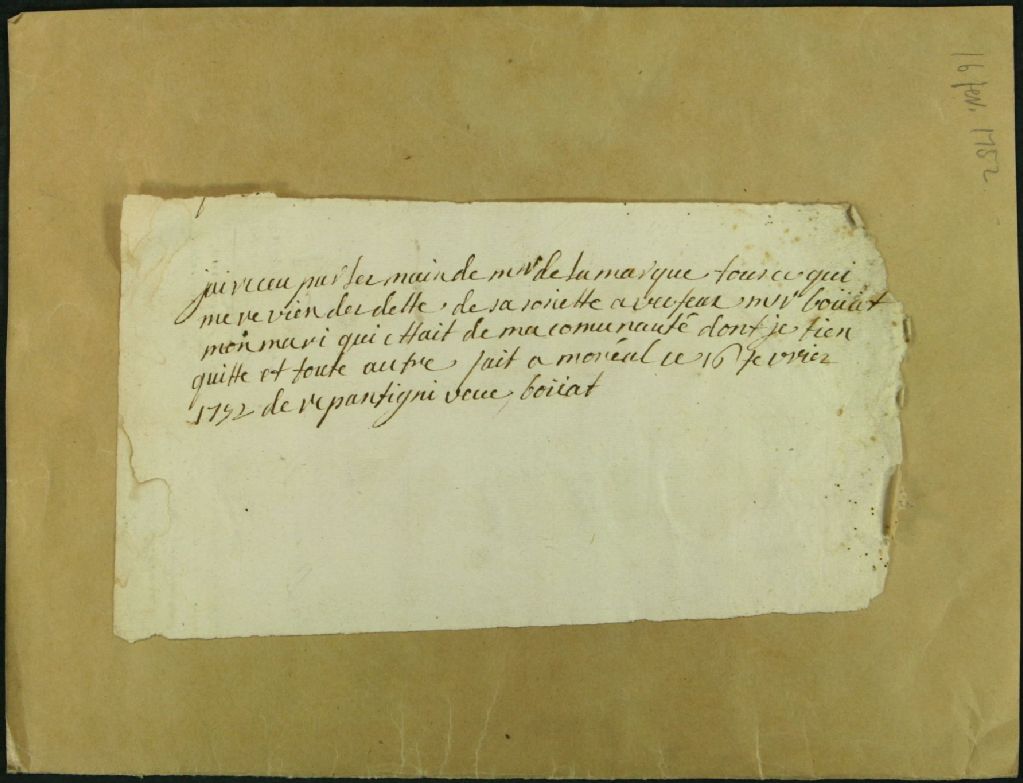 jai receu par les main de mr de la marque tousce qui
me revien des dette de sa sosiette avec feux mr boüat
mon mari qui ettait de ma comunauté dont je tien
quitte et toute autre fait a moréal ce 16 fevrier
1752 de repantigni veue boüat
16 fev. 1752